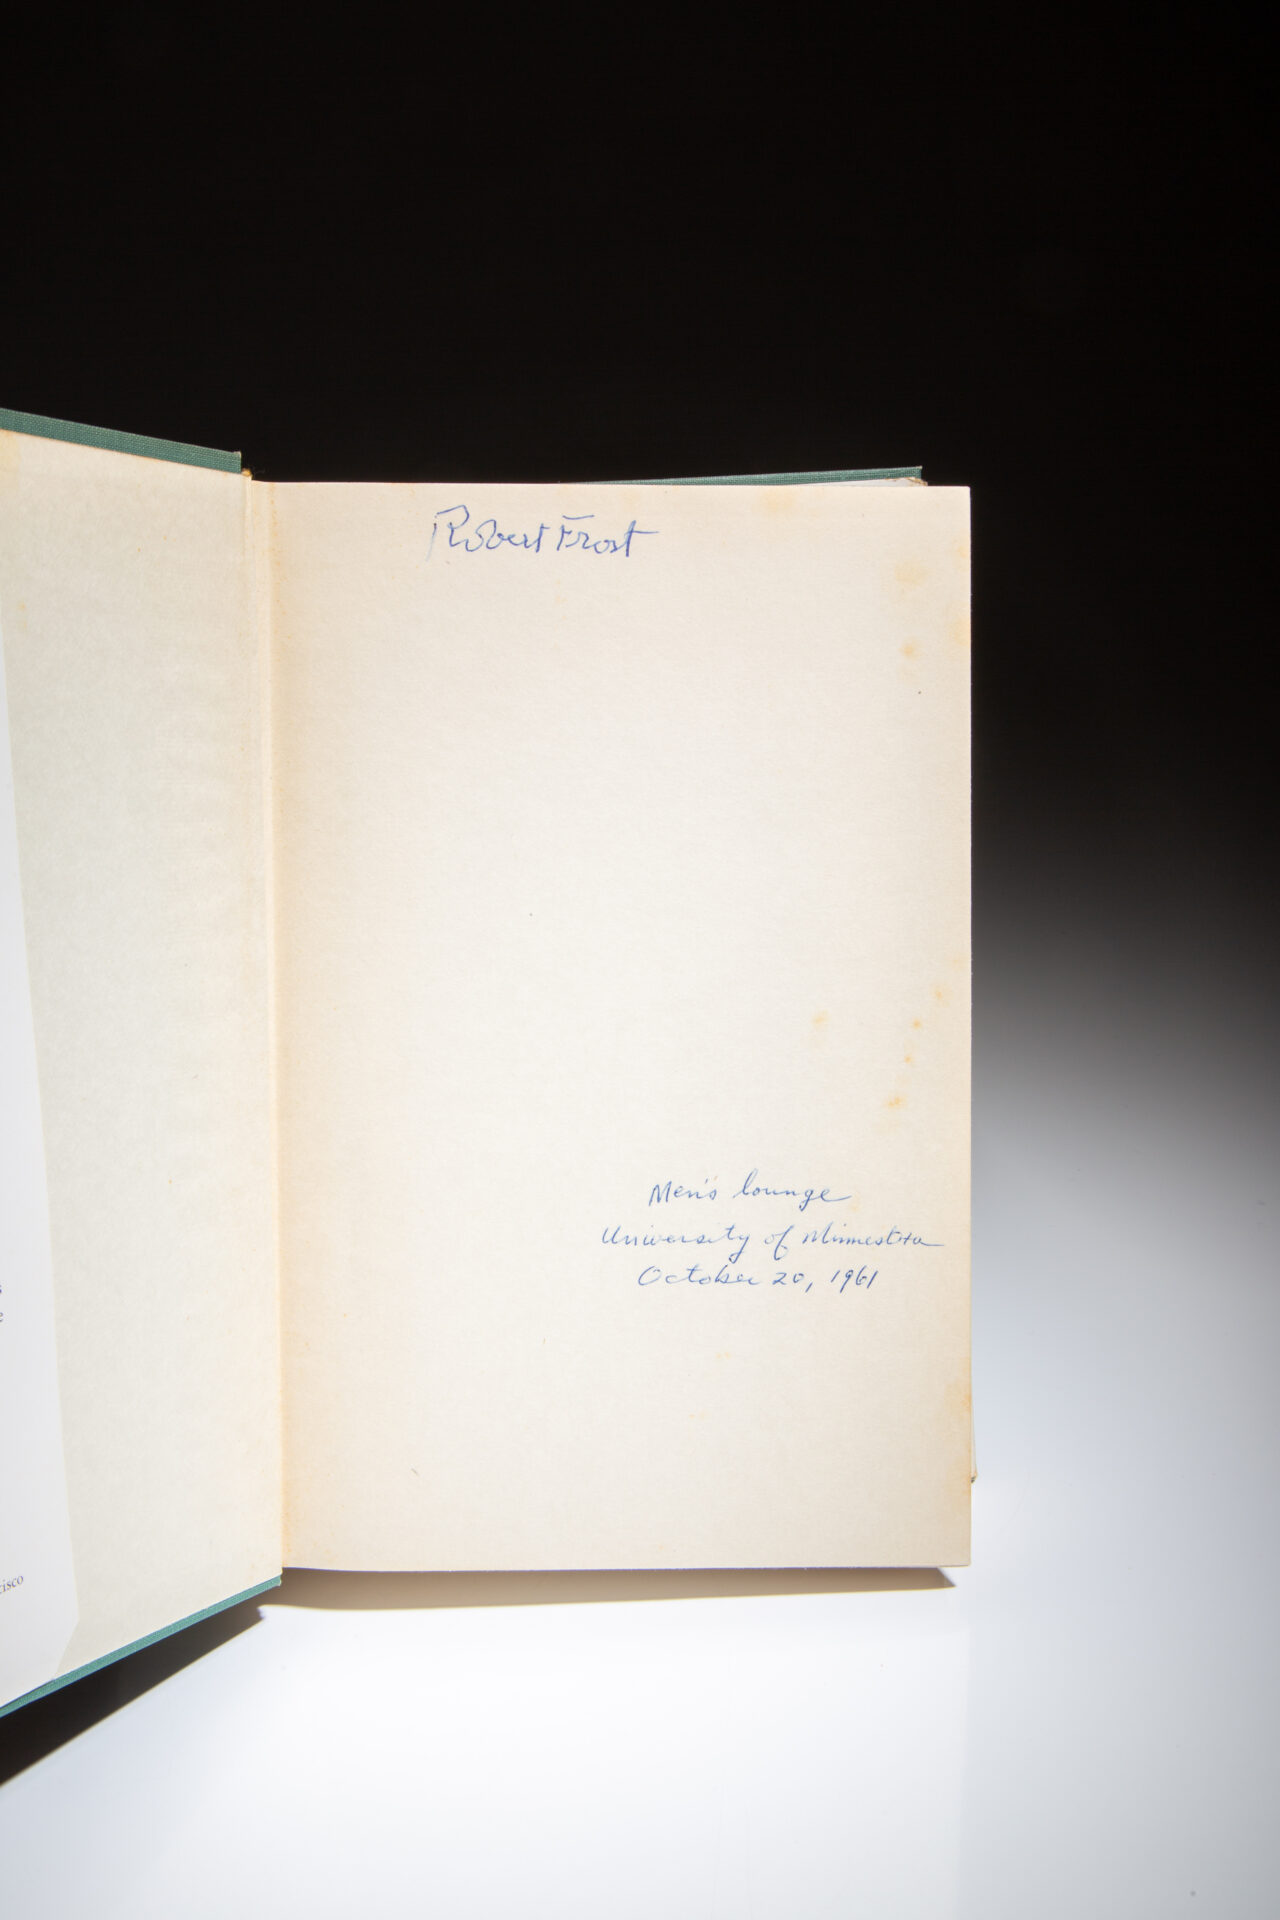 Robert Frost
Men's lounge
University of Minnesota
October 20, 1961
cisco